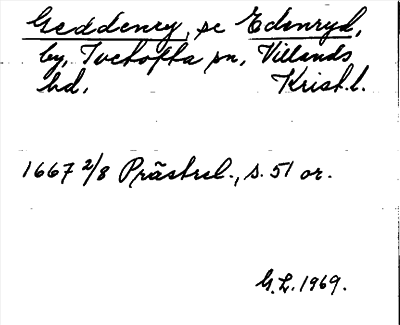 Geddenry, se Edenryd,
by, Ivetofta sn, Villands
hd. Krist.l.
1667 2/8 Prästrel., s. 51 or.
G.L. 1969.